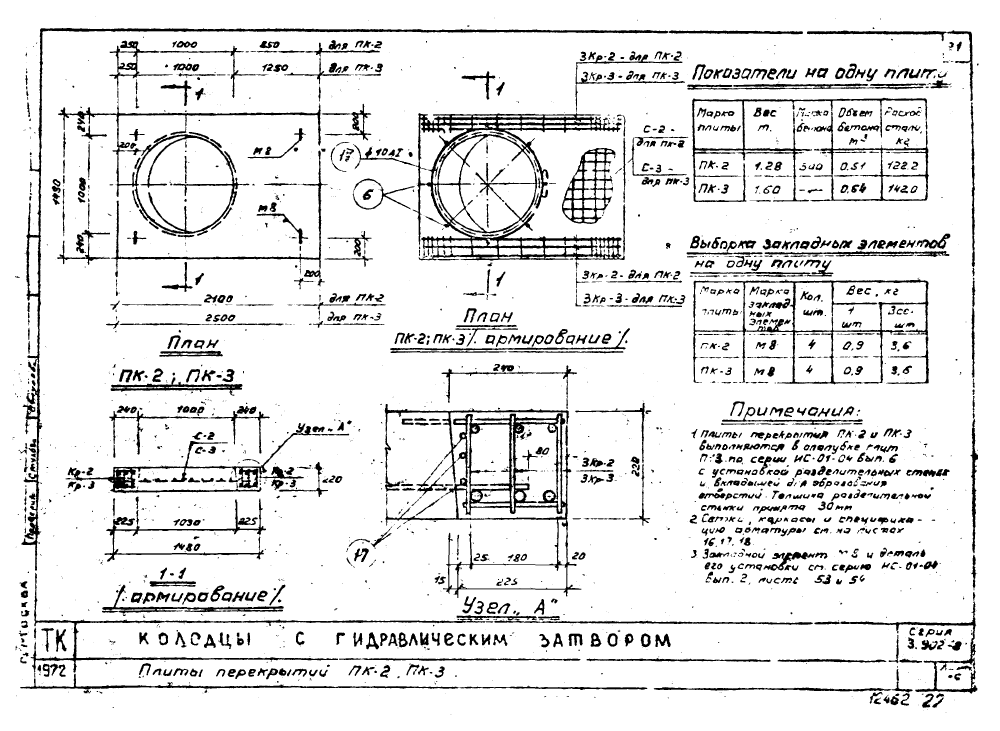 250 1000 850 для ПК-2
250 1000 1250 для ПК-3
1
240
200
200
1480
1000
М8
М8
240
200
200
1
2100 для ПК-2
2500 для ПК-3
План
ПК-2; ПК-3
3Кр-2 - для ПК-2
3Кр-3 - для ПК-3
1
ф10АI
6
С-2 -
для ПК-2
С-3 -
для ПК-3
1
3Кр-2 - для ПК-2
3Кр-3 - для ПК-3
План
ПК-2; ПК-3 /армирование/.
240 1000 240
С-2
С-3
Узел „А"
Кр-2
Кр-3
Кр-2
Кр-3
225 1030 225
1480
1-1
/армирование/.
240
80
3Кр-2
3Кр-3
220
17
25 180 20
15 225
Узел „А"
Показатели на одну плиту
Марка плиты Вес т. Марка бетона Объем бетона м³ Расход стали, кг
ПК-2 1.28 0.51 122.2
ПК-3 1.60 0.64 142.0
Выборка закладных элементов
на одну плиту
Марка плиты Марка закладных элементов Кол. шт. Вес, кг
1 шт
ПК-2 М8 4 0,9 3,6
ПК-3 М8 4 0,9 3,6
Примечания:
1 Плиты перекрытия ПК-2 и ПК-3
выполняются в опалубке плит
по серии ИС-01-04 Вып. 6
с установкой разделительных стенок
и вкладышей для образования
отверстий. Толщина разделительной
стенки принята 30мм
2 Сетки, каркасы и специфика-
цию арматуры см. на листах
16, 17, 18.
3 Закладной элемент и деталь
его установки см. серию ИС-01-04
Вып. 2, листы 53 и 54
г. Москва
ТК
КОЛОДЦЫ С ГИДРАВЛИЧЕСКИМ ЗАТВОРОМ
Серия
3.902-8
1972
Плиты перекрытий ПК-2, ПК-3.
12462 22